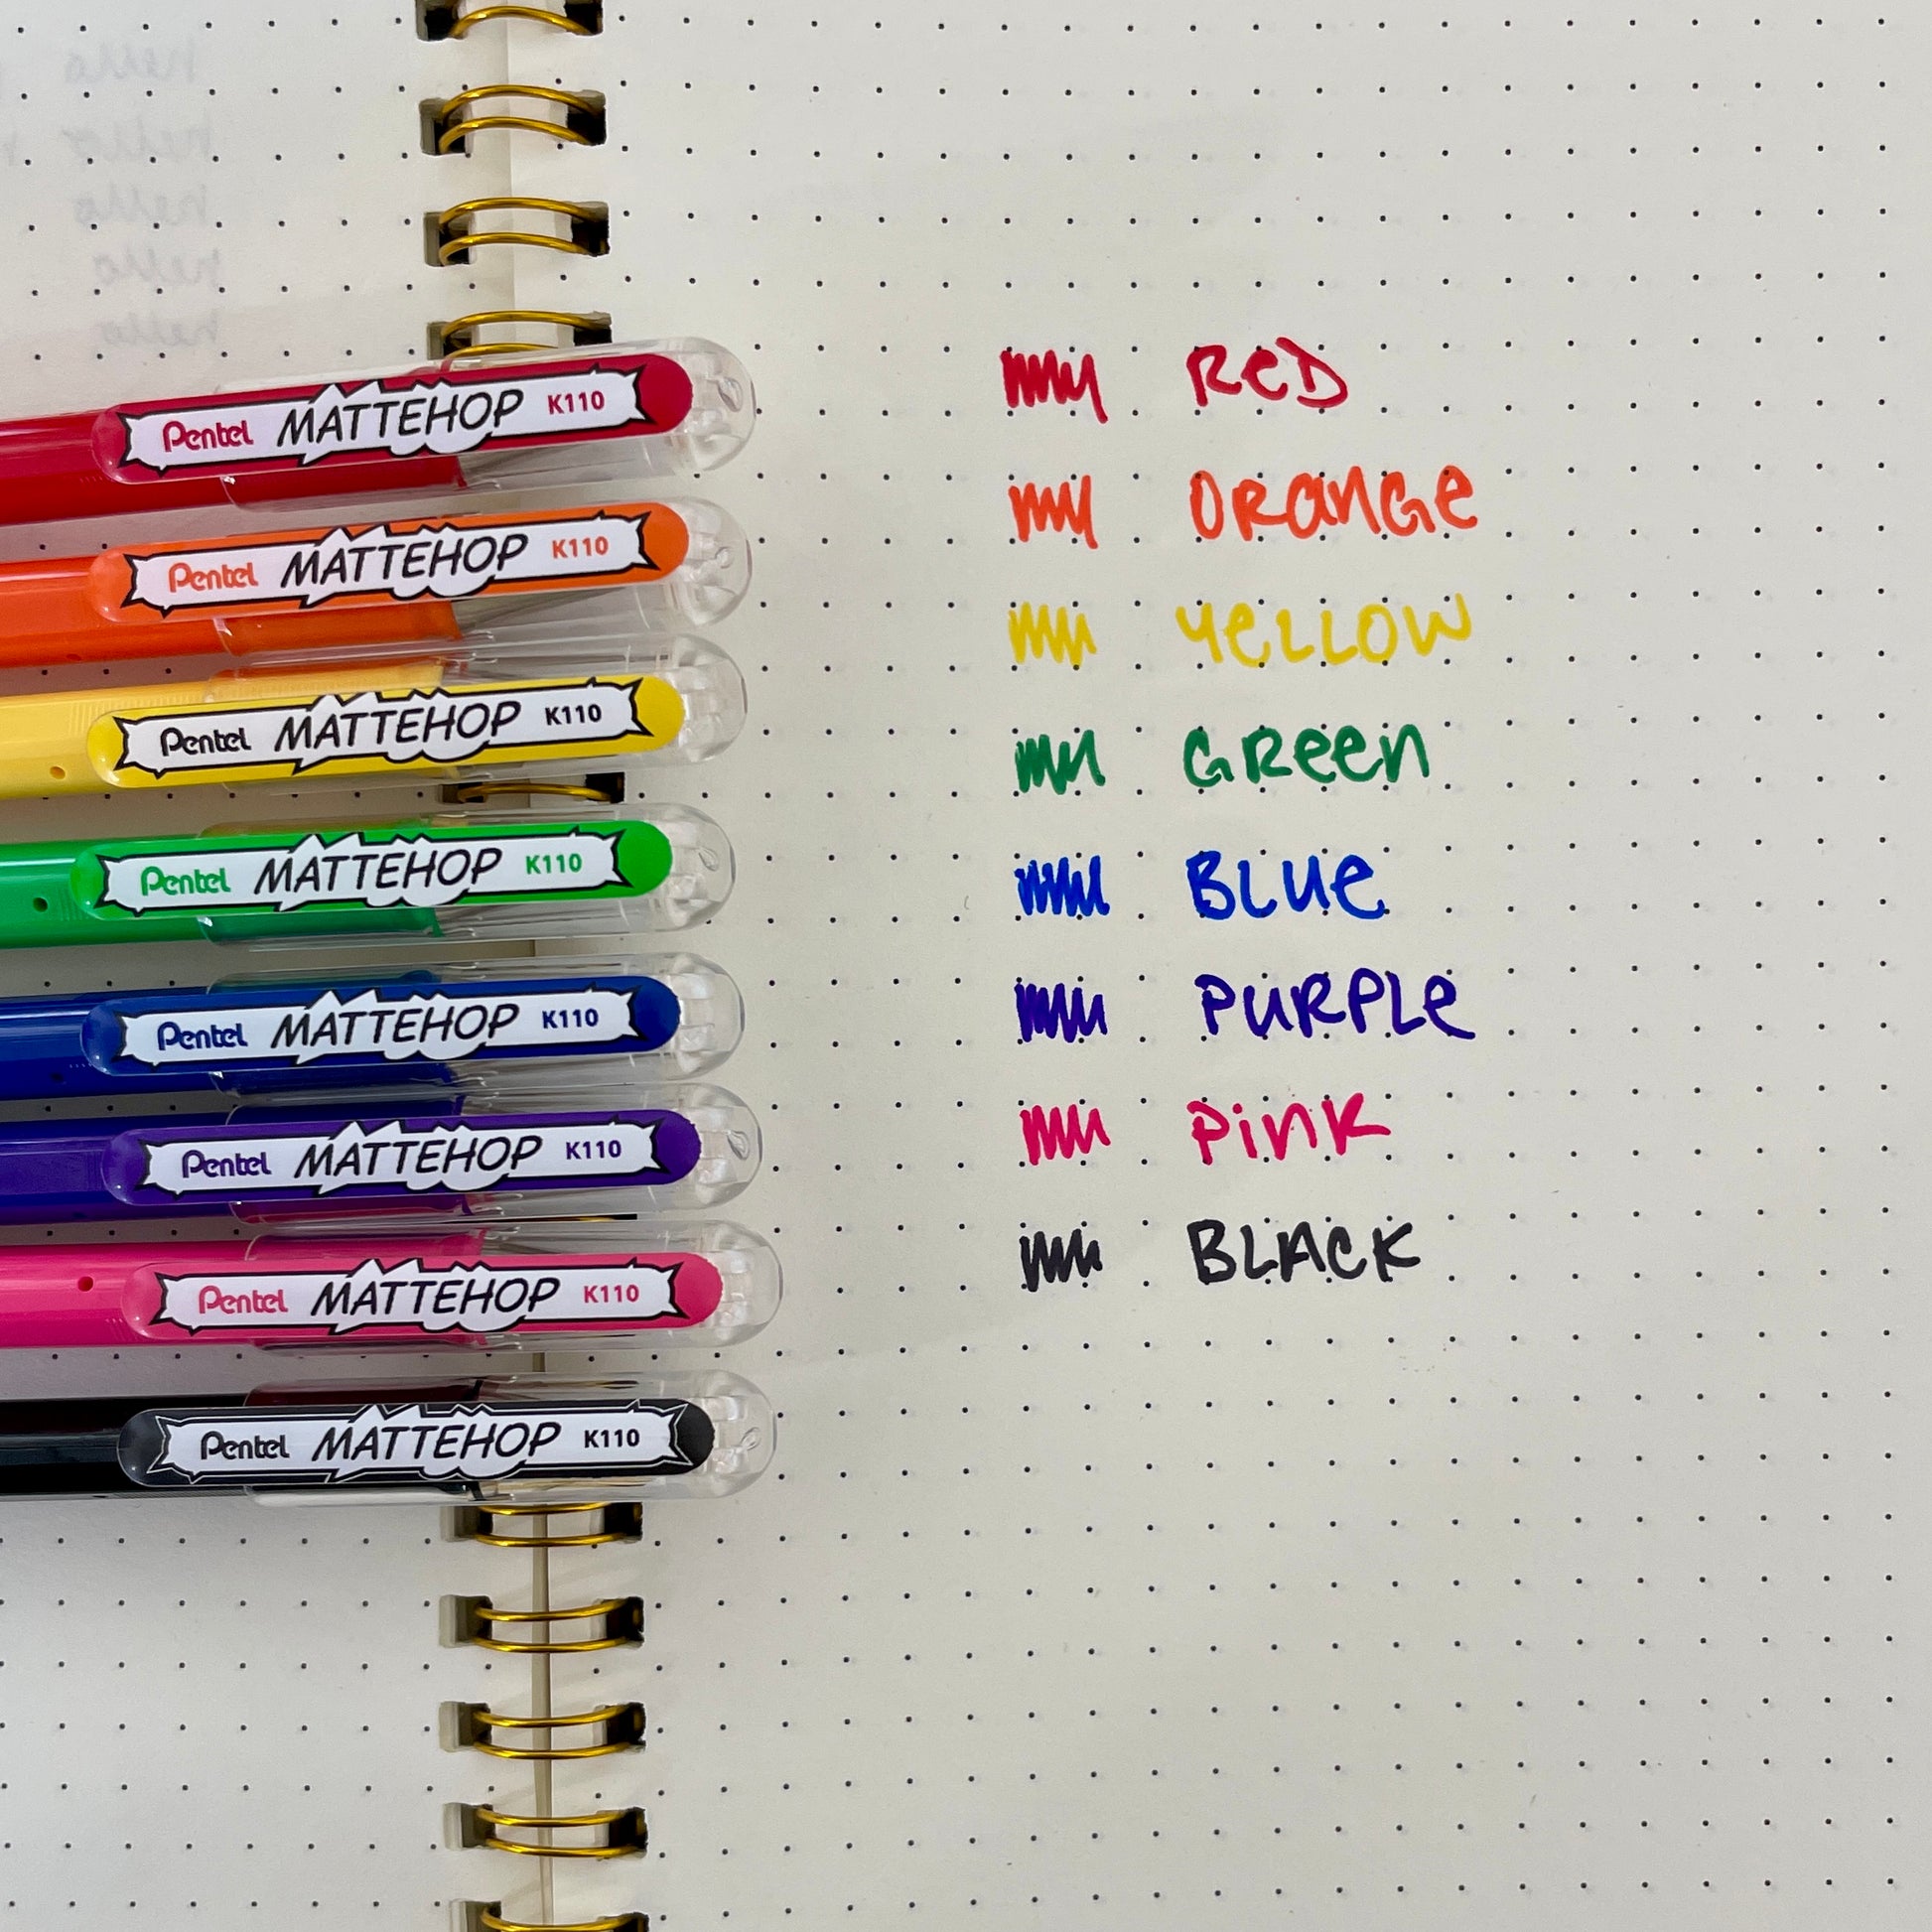 hello
hello
hello
hello
hello
Pentel MATTEHOP K110
RED
Pentel MATTEHOP K110
ORANGE
Pentel MATTEHOP K110
YELLOW
Pentel MATTEHOP K110
GREEN
Pentel MATTEHOP K110
BLUE
Pentel MATTEHOP K110
PURPLE
Pentel MATTEHOP K110
PINK
Pentel MATTEHOP K110
BLACK